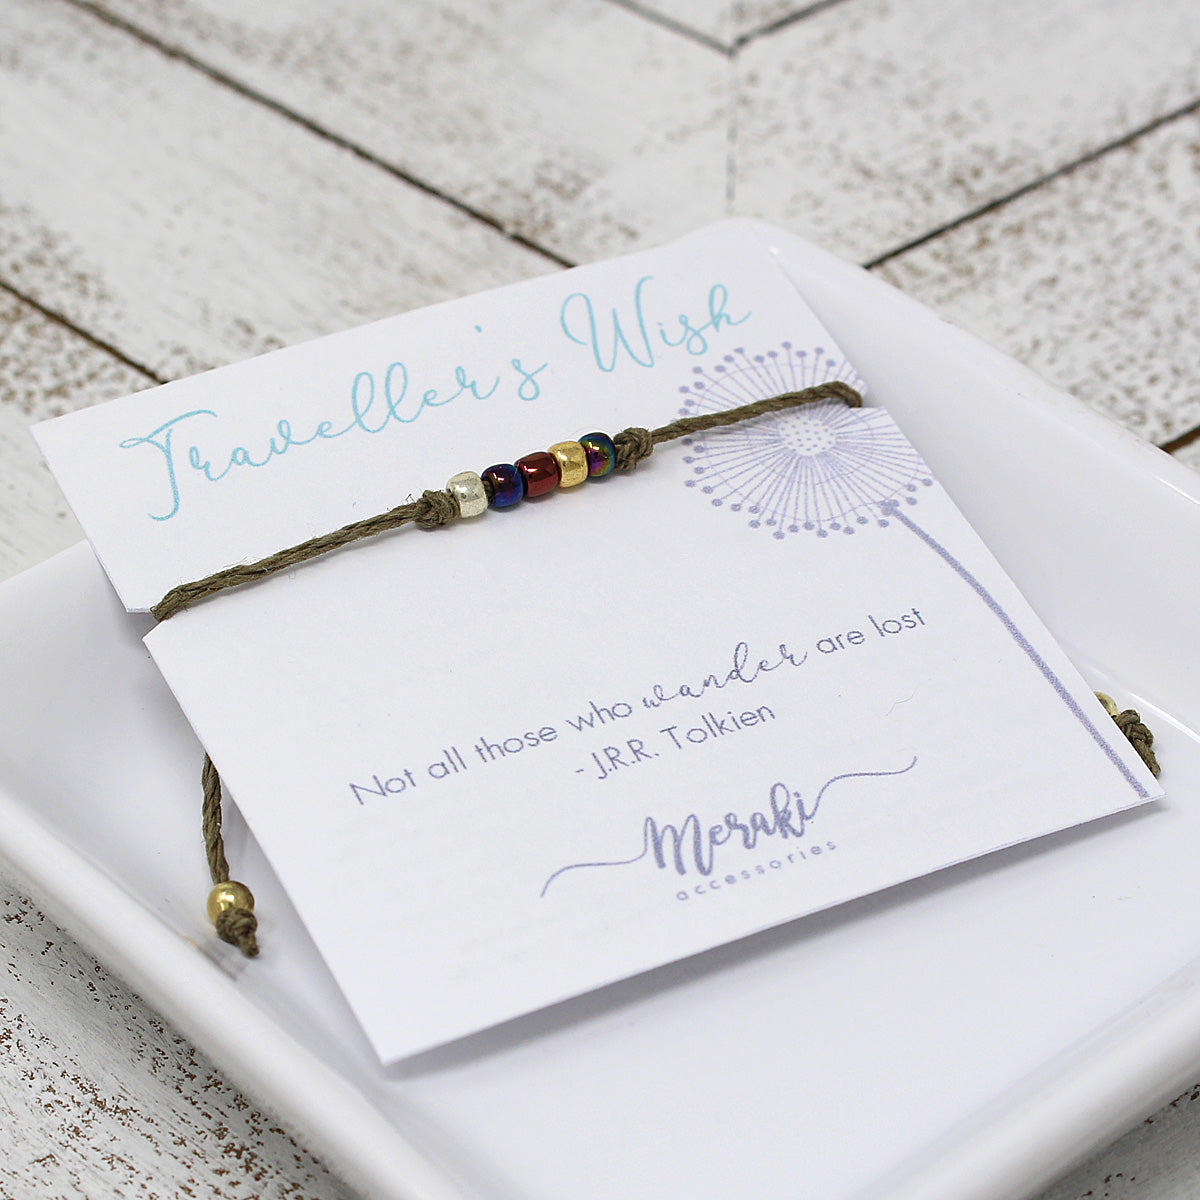 Traveller's Wish
Not all those who wander are lost
- J.R.R. Tolkien
Meraki
accessories